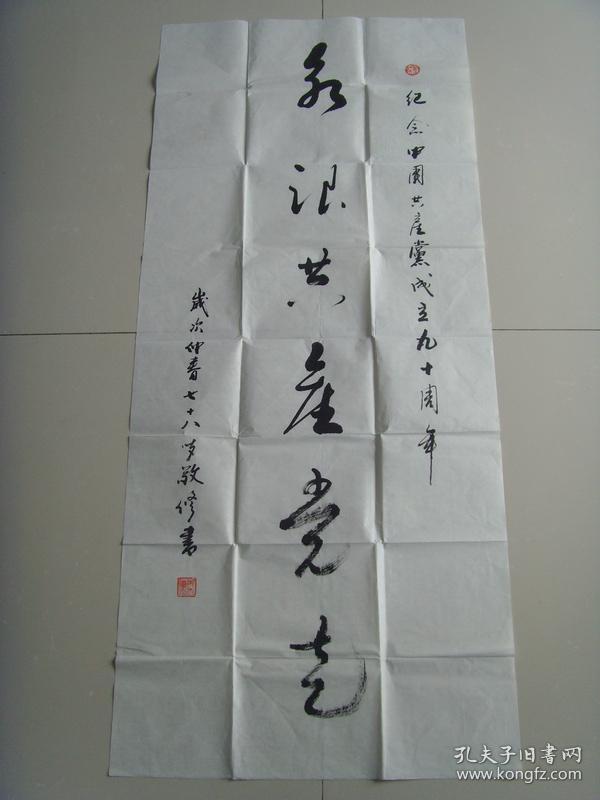 纪念中国共産黨成立九十周年
永跟共産党走
歲次仲春七十八岁敬修書
孔夫子旧书网
www.kongfz.com